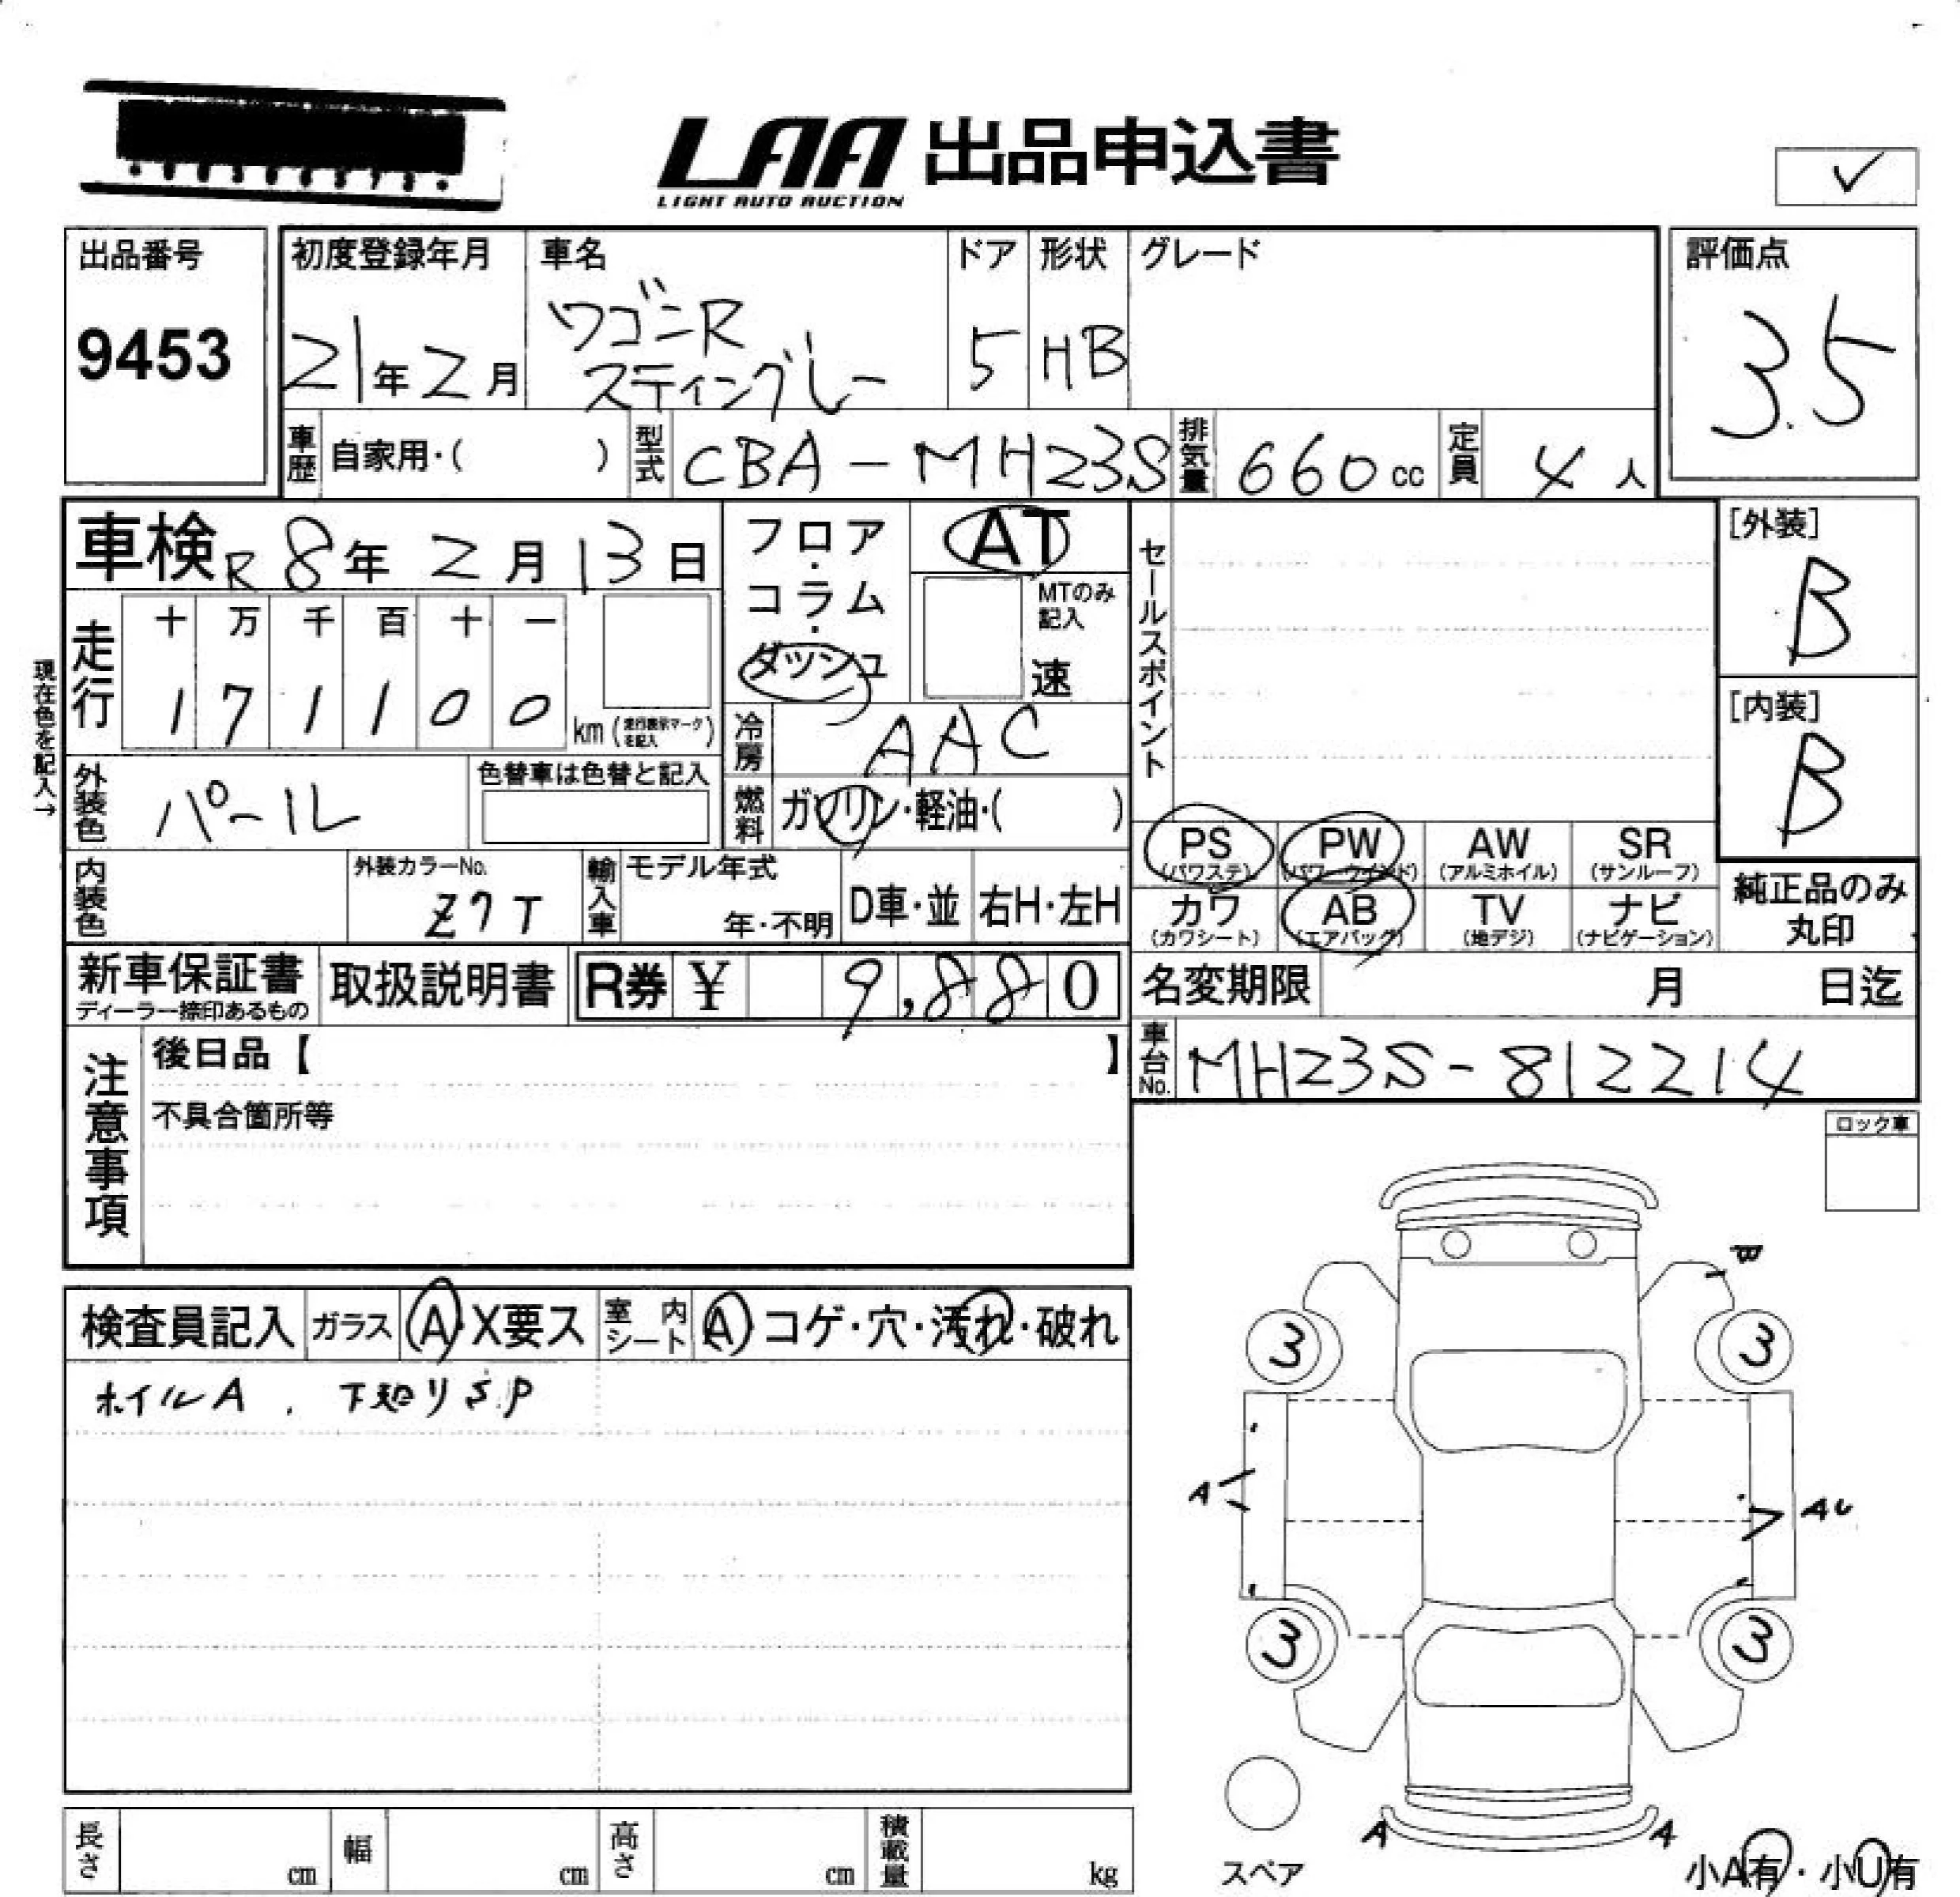 LAA 出品申込書
LIGHT AUTO AUCTION
✓
出品番号
9453
初度登録年月
21年2月
車名
ワゴンR
スティングレー
ドア
5
形状
HB
グレード
評価点
3.5
車歴 自家用・( )
型式 CBA-MH23S
排気量 660cc
定員 4人
車検 R8年2月13日
フロア・コラム・ダッシュ
AT
MTのみ記入
速
セールスポイント
[外装]
B
[内装]
B
現在色を記入→
走行
十 万 千 百 十 一
1 7 1 1 0 0
km (走行表示マークを記入)
冷房 AAC
外装色 パール
色替車は色替と記入
燃料 ガソリン・軽油・( )
内装色
外装カラーNo.
Z7T
輸入車
モデル年式
年・不明
D車・並
右H・左H
PS (パワステ)
PW (パワーウインド)
AW (アルミホイル)
SR (サンルーフ)
カワ (カワシート)
AB (エアバッグ)
TV (地デジ)
ナビ (ナビゲーション)
純正品のみ丸印
新車保証書
ディーラー捺印あるもの
取扱説明書
R券 ¥ 9,880
名変期限 月 日迄
車台No. MH23S-812214
注意事項
後日品【 】
不具合箇所等
ロック車
検査員記入
ガラス A・X要ス
室内シート A・コゲ・穴・汚れ・破れ
ホイルA. 下廻りS.P
3 3
A
AU
3 3
A A
スペア
小A有・小U有
長さ cm
幅 cm
高さ cm
積載量 kg